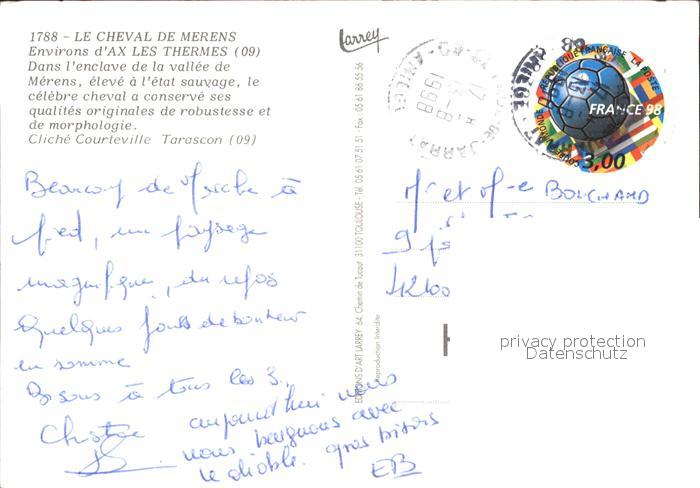 1788 - LE CHEVAL DE MERENS
Environs d'AX LES THERMES (09)
Dans l'enclave de la vallée de
Mérens, élevé à l'état sauvage, le
célèbre cheval a conservé ses
qualités originales de robustesse et
de morphologie.
Cliché Courteville Tarascon (09)
Larrey
EDITIONS D'ART LARREY 64, Chemin de Tucaut 31100 TOULOUSE - Tél. 05 61 07 51 51 - Fax 05 61 86 55 56
Reproduction Interdite
REPUBLIQUE FRANÇAISE LA POSTE
FRANCE 98
3,00
1998
Beaucoup de marche à
pied, un paysage
magnifique, du repos
Quelques jours de bonheur
en somme
Bisous à tous les 3.
Christine
aujourd'hui nous
nous baignons avec
le diable. gros bisous
EB
Mr et Mme BOUCHAND
9
42100
privacy protection
Datenschutz